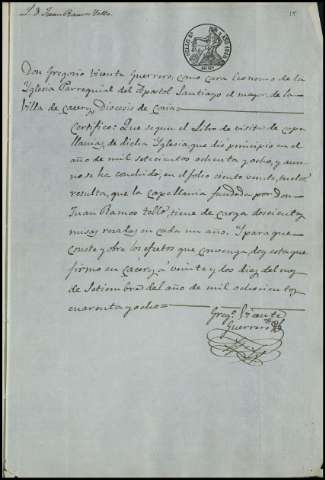 D. Juan Ramos Tello.
15
Don Gregorio Vicente Guerrero, cura Economo de la
Yglesia Parroquial del Apostol Santiago el mayor de la
Villa de Caceres Diocesis de Coria
Certifico: Que segun el Libro de visita de cape
llanias de dicha Yglesia que dio principio en el
año de mil setecientos ochenta y ocho, y aun
no se ha concluido, en el folio ciento veinte, vuelto
resulta, que la capellania fundada por don
Juan Ramos Tello, tiene de carga doscientas
misas rezadas en cada un año. Y para que
conste y obre los efectos que convenga doy esta que
firmo en Caceres a veinte y dos dias del mes
de Setiembre del año de mil ochocientos
cuarenta y ocho
Gregº. Vicente
Guerrero